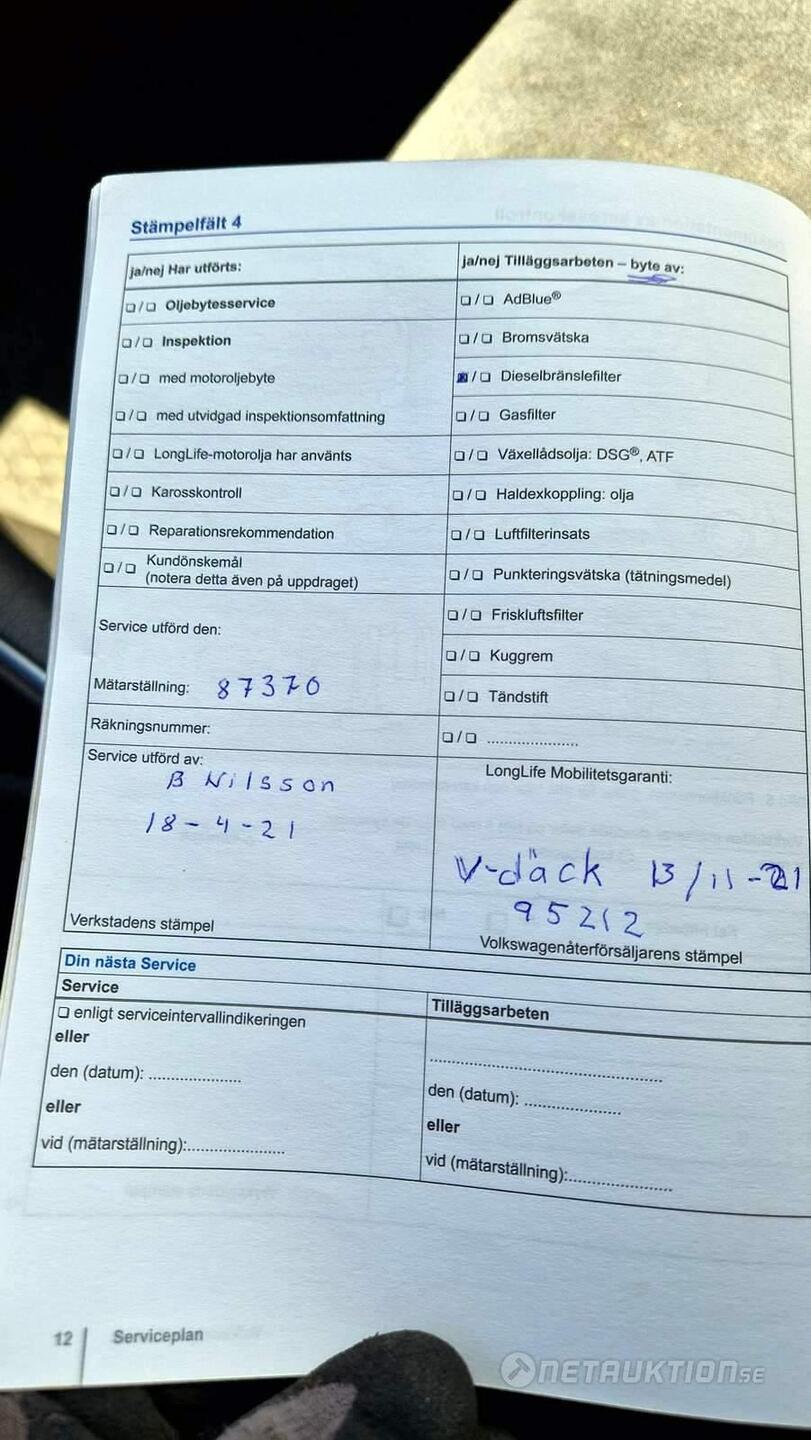 Stämpelfält 4
ja/nej Har utförts:
❏ / ❏ Oljebytesservice
❏ / ❏ Inspektion
❏ / ❏ med motoroljebyte
❏ / ❏ med utvidgad inspektionsomfattning
❏ / ❏ LongLife-motorolja har använts
❏ / ❏ Karosskontroll
❏ / ❏ Reparationsrekommendation
❏ / ❏ Kundönskemål
(notera detta även på uppdraget)
Service utförd den:
Mätarställning: 87370
Räkningsnummer:
Service utförd av:
B Nilsson
18-4-21
Verkstadens stämpel
ja/nej Tilläggsarbeten – byte av:
❏ / ❏ AdBlue®
❏ / ❏ Bromsvätska
☒ / ❏ Dieselbränslefilter
❏ / ❏ Gasfilter
❏ / ❏ Växellådsolja: DSG®, ATF
❏ / ❏ Haldexkoppling: olja
❏ / ❏ Luftfilterinsats
❏ / ❏ Punkteringsvätska (tätningsmedel)
❏ / ❏ Friskluftsfilter
❏ / ❏ Kuggrem
❏ / ❏ Tändstift
❏ / ❏ ......................
LongLife Mobilitetsgaranti:
V-däck 13/11-21
95212
Volkswagenåterförsäljarens stämpel
Din nästa Service
Service
❏ enligt serviceintervallindikeringen
eller
den (datum): ......................
eller
vid (mätarställning):......................
Tilläggsarbeten
......................................................
den (datum): ......................
eller
vid (mätarställning):......................
12 Serviceplan
NETAUKTION.SE